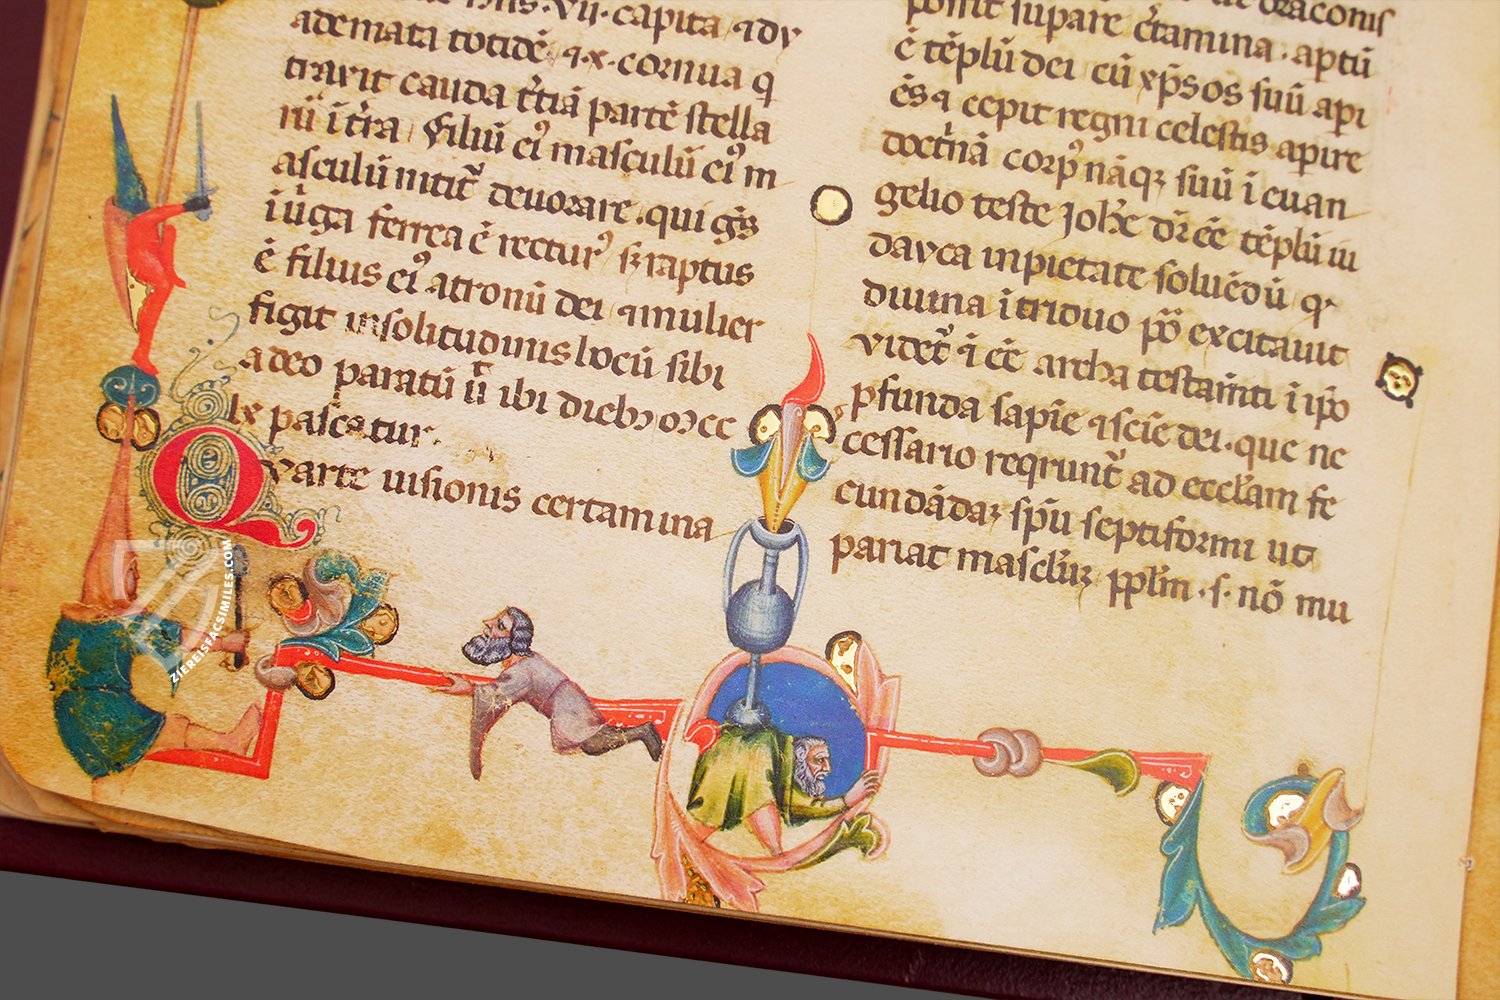 hns · vii · capita ⁊ dy
ademata totidē ⁊ · x · cornua q
traxit cauda t̄tiā partē stella
rū ī t̄ra filiū eiꝰ masculū eiꝰ m
asculū mitit̄ deuorare . qui gn̄s
ī ūga ferrea ē recturꝰ ⁊ raptus
ē filius eiꝰ a tronū dei ⁊ mulier
figit in solitudinis locū sibi
a deo paratū ū ibi dieb
lx pascatur .
Qvarte uisionis certamina
draconis
possit supare c̄tamina . aptū
ē tēplū dei cū xp̄s os suū api
ēs ⁊ cepit regni celestis apire
doct̄nā corpꝰ nāqꝫ suū ī euan
gelio teste Joh̄e dr̄ eē tēplū iu
dayca inpietate soluēdū q
diuina ī triduo excitauit
videt̄ ⁊ ī eē archa testam̄ti ī ip̄o
ꝓfunda sapīe ⁊ scīe dei . que ne
cessario reqrunt̄ ad eccl̄am fe
cundādaꝫ sp̄u septiformi ut
pariat pp̄lm · s · nō mu
ZIEREISFACSIMILES.COM